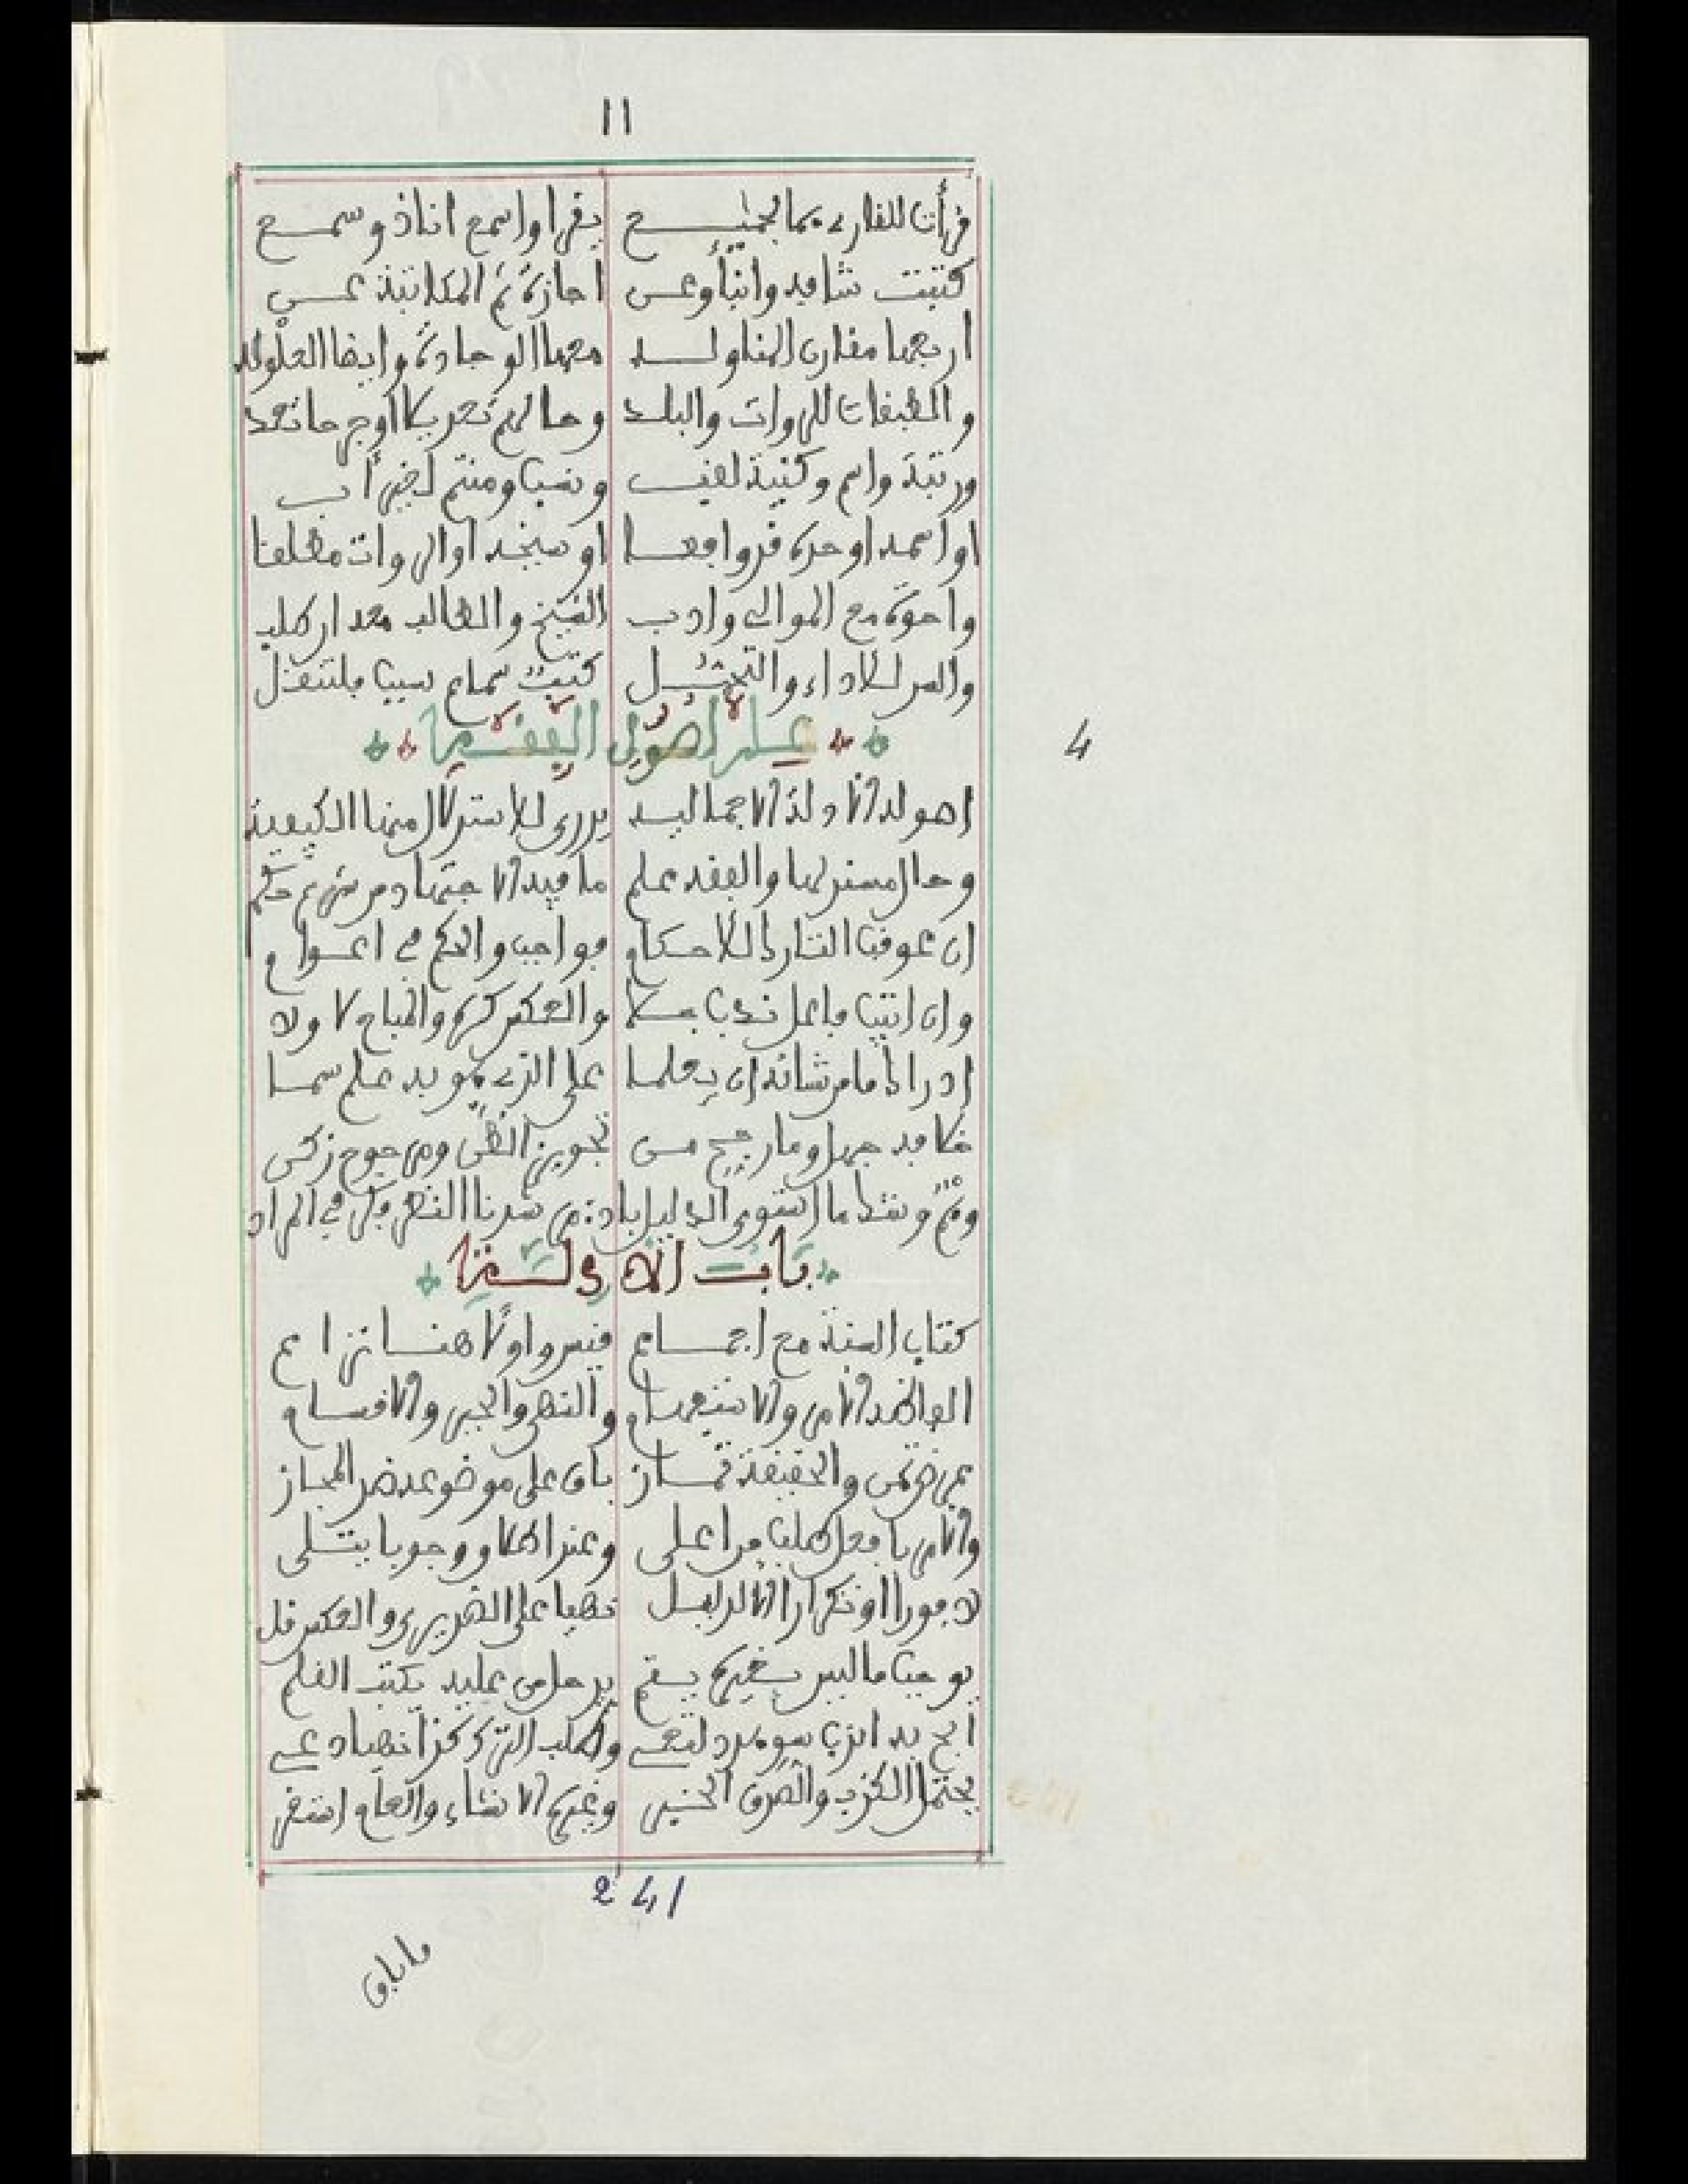 11
قرأت للقارئ بما لجميع يقرا واسمع انا ذو سمع
كتبت شافه وانبأ وعن اجازة ثم المكاتبة عن
ارفعها مقارن المناوله معها الوجادة وايضا
والطبقات للروات والبلد وحالهم تعريكا اوجرحا تعد
ورتبة واسم وكنية لقب ونسبا ومنتم لغير أب
او اسمه او جده قد وافقا او شيخه او الروات مطلقا
واخوة مع الموالى وادب الشيخ والطالب معه اركلب
والسن للاداء والتحمل كتبت سماع سببا فلتنقل
علم اصول الفقه
4
اصوله الادلة الاجماليه يدرى للاستدلال منها الكيفية
وحال مستدلها والفقه علم ما فيه الاجتهاد من شرع حكم
ان عوقب التارك للاحكام فواجب والحكم في اعوام
وان اثيب فاعل ندب جلا والعكس كره والمباح لا ولا
ادراك ما من شانه ان يعلما على الذى هو به علم سما
خلافه جهل وما رجح من تجويز الظن ومرجوح زكن
وهم وشك ما استوى الدليل باد: مرشدنا النظر فكر في المراد
باب الادلة
كتاب السنة مع اجماع قيس واولا هنا نزاع
الامر والاستفهام والنهى والخبر والاقسام
عرض تمن والحقيقة تماز باق على موضوعه ضد المجاز
والامر بافعل طلب من اعلى وعند اطلاق وجوبا يتلى
لا فورا او تكرارا الا لدليل نهيا على الضد يرى والعكس قل
يوجب ما ليس بغيره يتم يدخل من عليه يكتب القلم
ابح به اندب سو هدد لتعى واطلب الترك كذا نهيا دعى
يحتمل الكذب والصدق الخبر وغيره الانشاء والعام استقر
241
ما باق